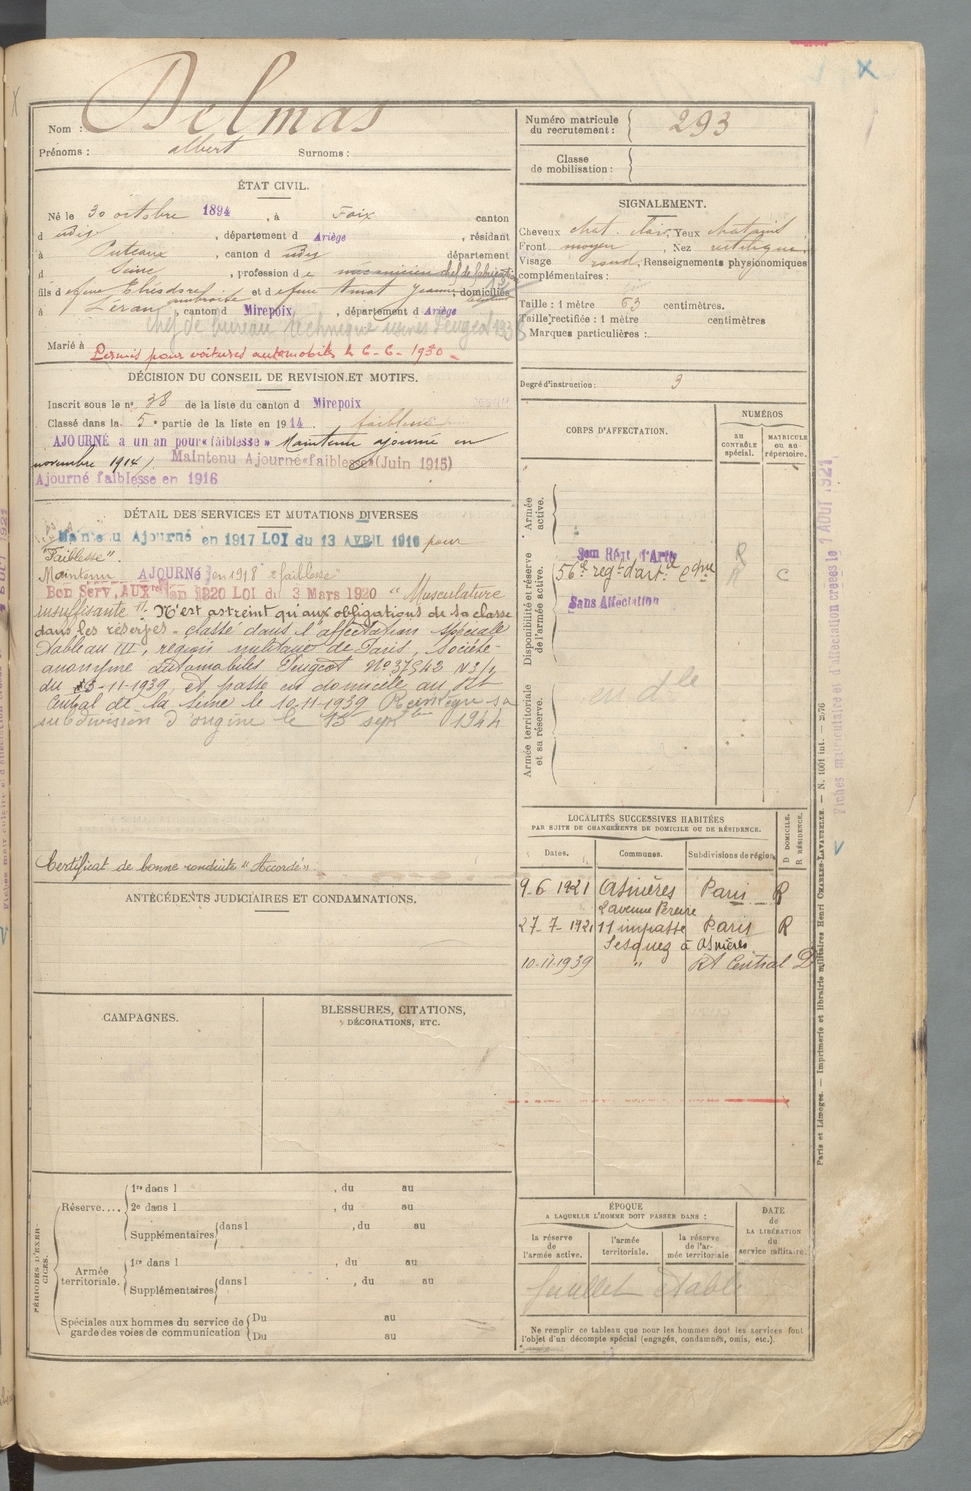 Nom : Delmas
Prénoms : albert Surnoms :
Numéro matricule du recrutement : 293
Classe de mobilisation :
ÉTAT CIVIL.
Né le 30 octobre 1894, à Foix canton
d udit, département d Ariège, résidant
à Puteaux, canton d udit département
d Seine, profession de mécanicien chef de fabrication
fils d efeu et d efeu Amat Jeanne, domiciliés
à Léran, canton d Mirepoix, département d Ariège
chef de bureau technique usines Peugeot 1938
Marié à
Permis pour voitures automobiles le 6-6-1930
SIGNALEMENT.
Cheveux chat. clair Yeux chataint
Front moyen, Nez rectiligne
Visage rond, Renseignements physionomiques
complémentaires :
Taille : 1 mètre 63 centimètres.
Taille rectifiée : 1 mètre centimètres
Marques particulières :
Degré d'instruction : 3
DÉCISION DU CONSEIL DE REVISION ET MOTIFS.
Inscrit sous le n° 38 de la liste du canton d Mirepoix
Classé dans la 5e partie de la liste en 1914. faiblesse
AJOURNÉ à un an pour « faiblesse » Maintenu ajourné en
novembre 1914). Maintenu Ajourné « faiblesse » (Juin 1915)
Ajourné faiblesse en 1916
DÉTAIL DES SERVICES ET MUTATIONS DIVERSES
Maintenu Ajourné en 1917 LOI du 13 AVRIL 1916 pour
"Faiblesse".
Maintenu AJOURNÉ en 1918 "faiblesse"
Bon Serv. AUXre en 1920 LOI du 3 Mars 1920 "Musculature
insuffisante". N'est astreint qu'aux obligations de sa classe
dans les réserves - classé dans l'affectation spéciale
Tableau III, région militaire de Paris, Société-
anonyme automobiles Peugeot N° 37543 N3/1
du -11-1939, et passe en domicile au Rt
Central de la Seine le 10-11-1939 Réintègre sa
subdivision d'origine le 15 septbre 1944
Certificat de bonne conduite "Accordé"
CORPS D'AFFECTATION.
NUMÉROS
AU CONTRÔLE spécial.
MATRICULE ou au répertoire.
Armée active.
Disponibilité et réserve de l'armée active.
Armée territoriale et sa réserve.
Régt d'Artie
56e regt d'artie Cgne
C
Sans Affectation
en dle
LOCALITÉS SUCCESSIVES HABITÉES
PAR SUITE DE CHANGEMENTS DE DOMICILE OU DE RÉSIDENCE.
Dates. Communes. Subdivisions de région D DOMICILE. R RÉSIDENCE.
9-6 1921 Asnières Paris R
2 avenue Pereire
27-7-1921 11 impasse Paris R
à Asnières
10-11-1939 " Rt Central D
ANTÉCÉDENTS JUDICIAIRES ET CONDAMNATIONS.
CAMPAGNES.
BLESSURES, CITATIONS,
DÉCORATIONS, ETC.
PÉRIODES D'EXERCICES.
Réserve....
1re dans l , du au
2e dans l , du au
Supplémentaires dans l , du au
Armée territoriale.
1re dans l , du au
Supplémentaires dans l , du au
Spéciales aux hommes du service de garde des voies de communication
Du au
Du au
ÉPOQUE
A LAQUELLE L'HOMME DOIT PASSER DANS :
la réserve de l'armée active.
l'armée territoriale.
la réserve de l'armée territoriale
DATE DE LA LIBÉRATION du service militaire.
feuillet établi
Ne remplir ce tableau que pour les hommes dont les services font
l'objet d'un décompte spécial (engagés, condamnés, omis, etc.).
Paris et Limoges. — Imprimerie et librairie militaires Henri CHARLES-LAVAUZELLE. — N. 1001 int. — 2/76
Fiches matriculaire et d'affectation créées le AOUT 1921